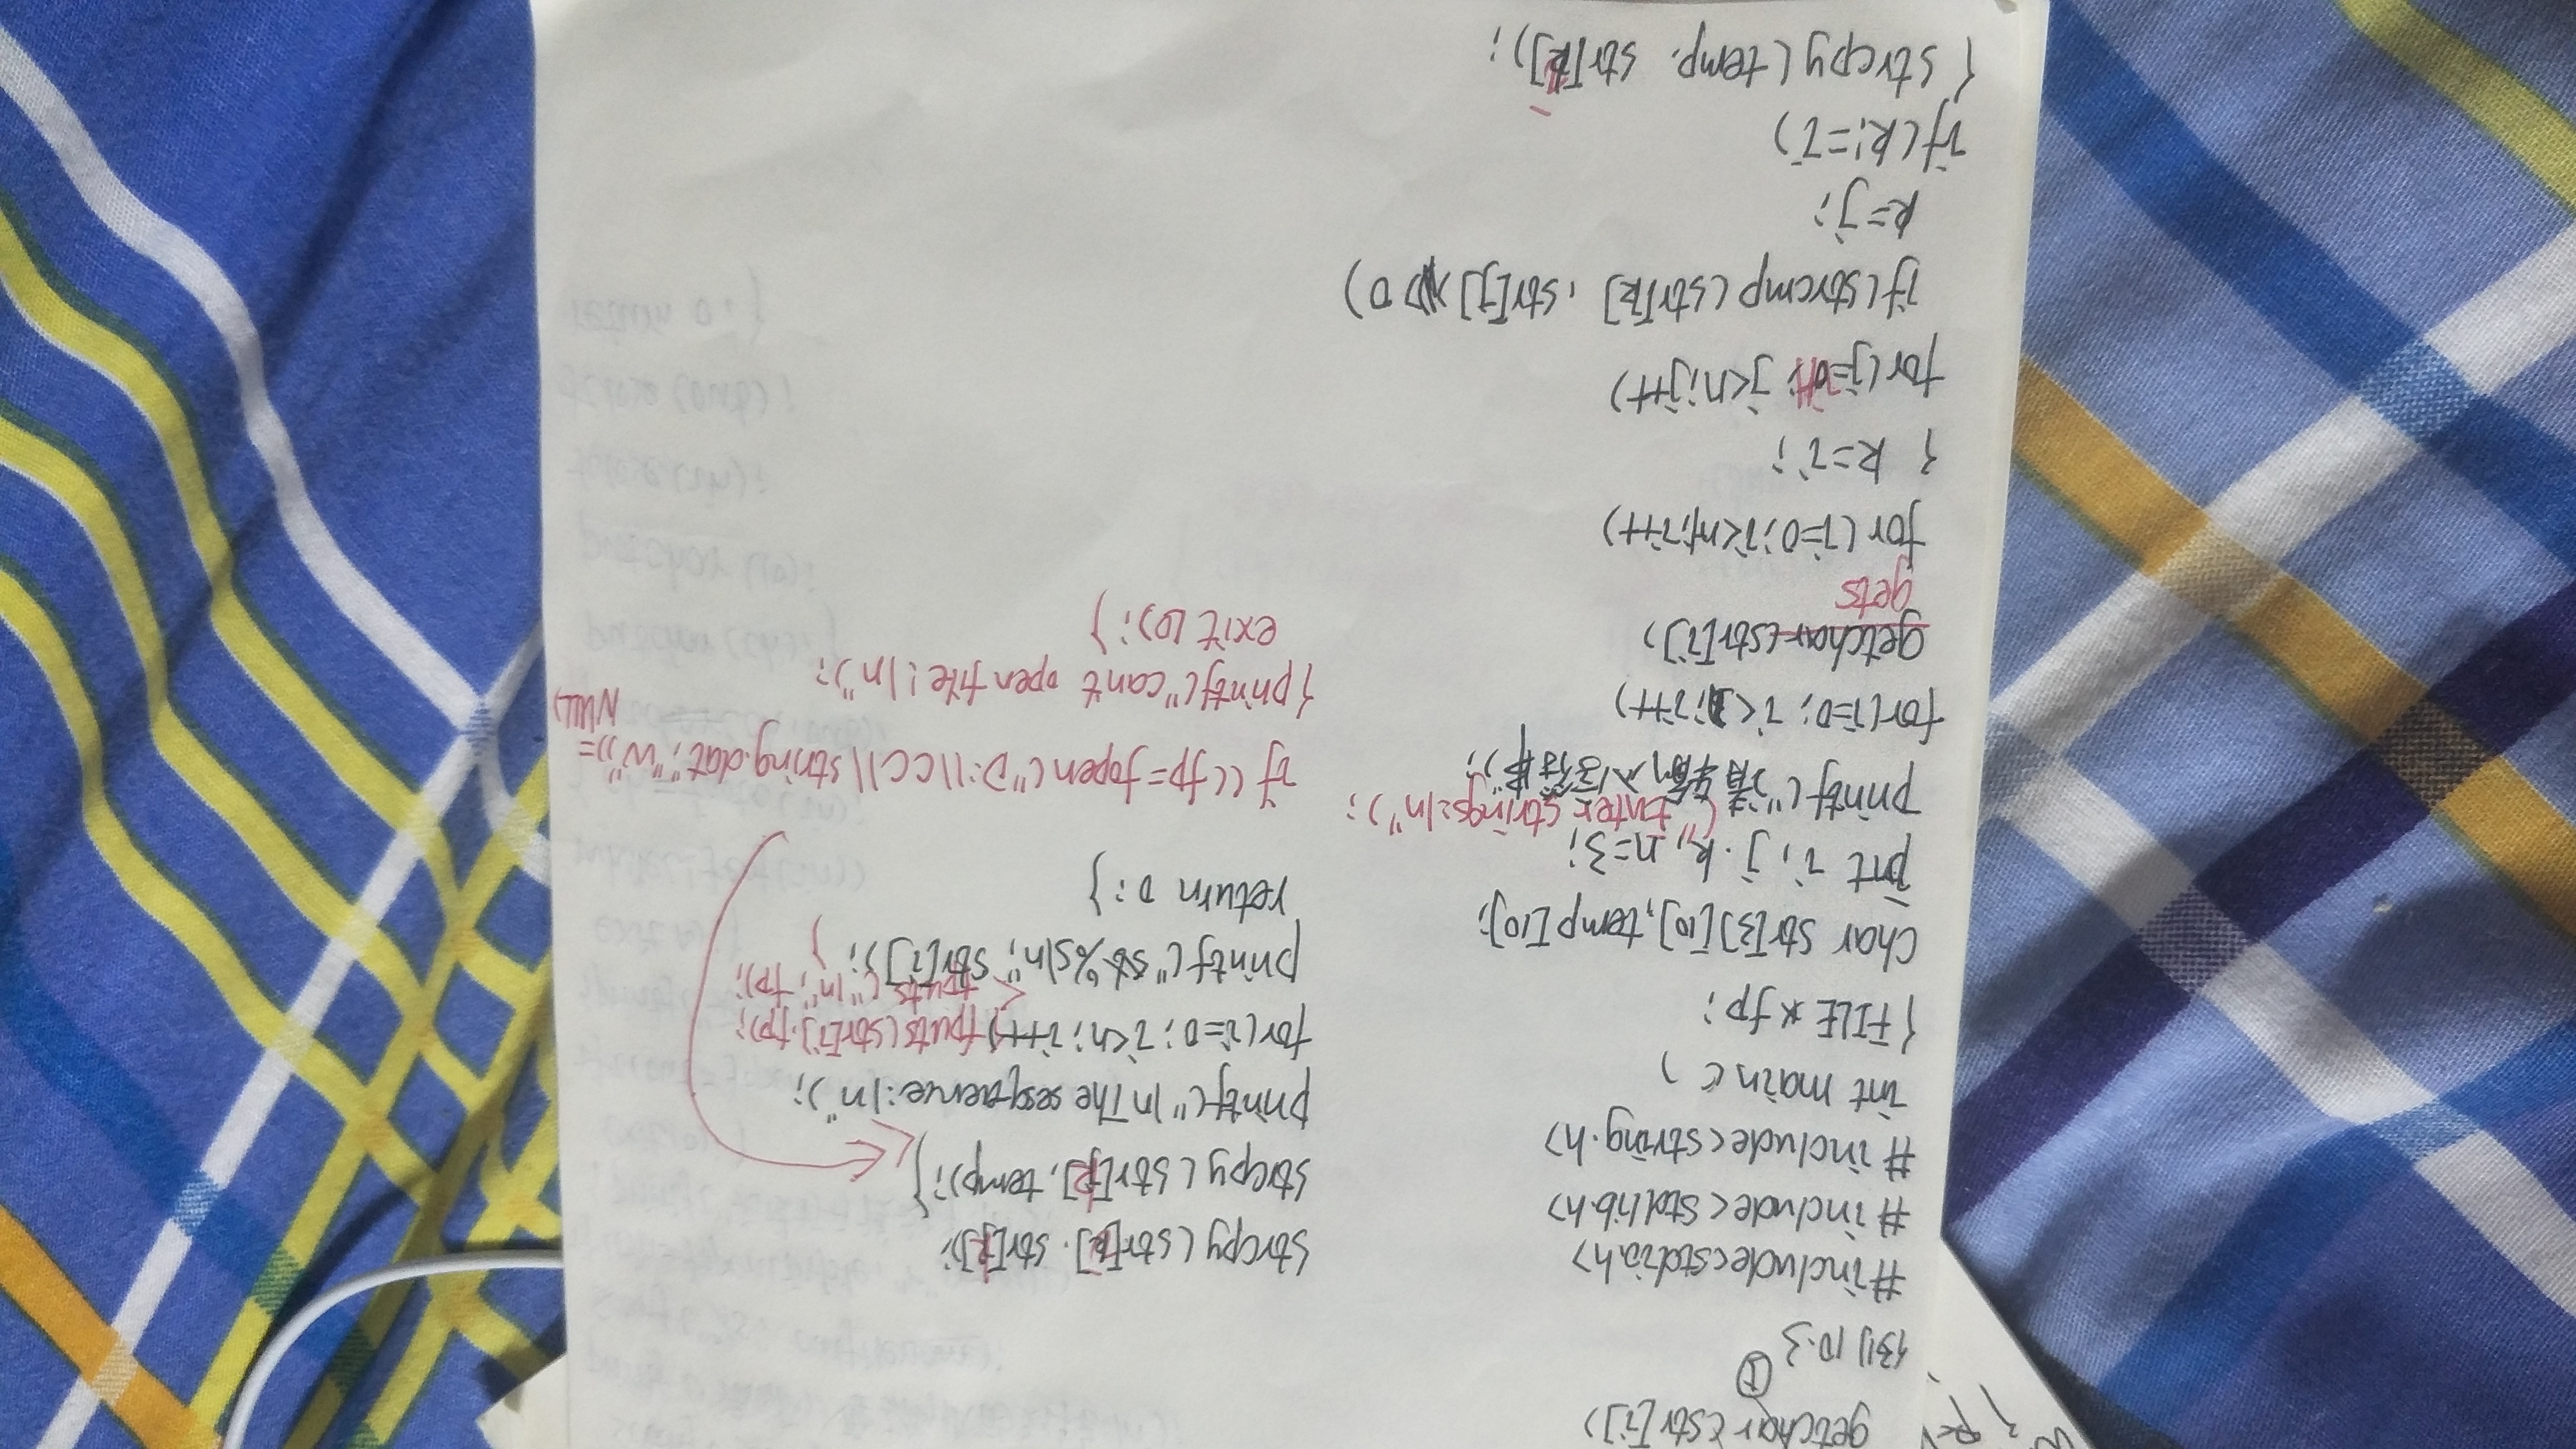 getchar(str[i])
①
例10.3
#include<stdio.h>
#include<stdlib.h>
#include<string.h>
int main( )
{FILE *fp;
char str[3][10],temp[10];
int i, j. k, n=3;
("Enter strings:\n");
printf("请输入字符串");
for(i=0; i<n;i++)
getchar(str[i])
gets
for(i=0;i<n;i++)
{ k=i;
for(j=i+1; j<n;j++)
if(strcmp(str[k],str[j])>0)
k=j;
if(k!=i)
{ strcpy(temp. str[i]);
strcpy(str[i]. str[k]);
strcpy(str[k],temp);}
printf("\nThe sesquence:\n");
for(i=0; i<n; i++) fputs(str[i].fp);
fputs("\n",fp);
printf("%s\n", str[i]); }
return 0;}
if((fp=fopen("D:\\CC\\string.dat","w"))=
NULL)
{printf("can't open file!\n");
exit(0);}